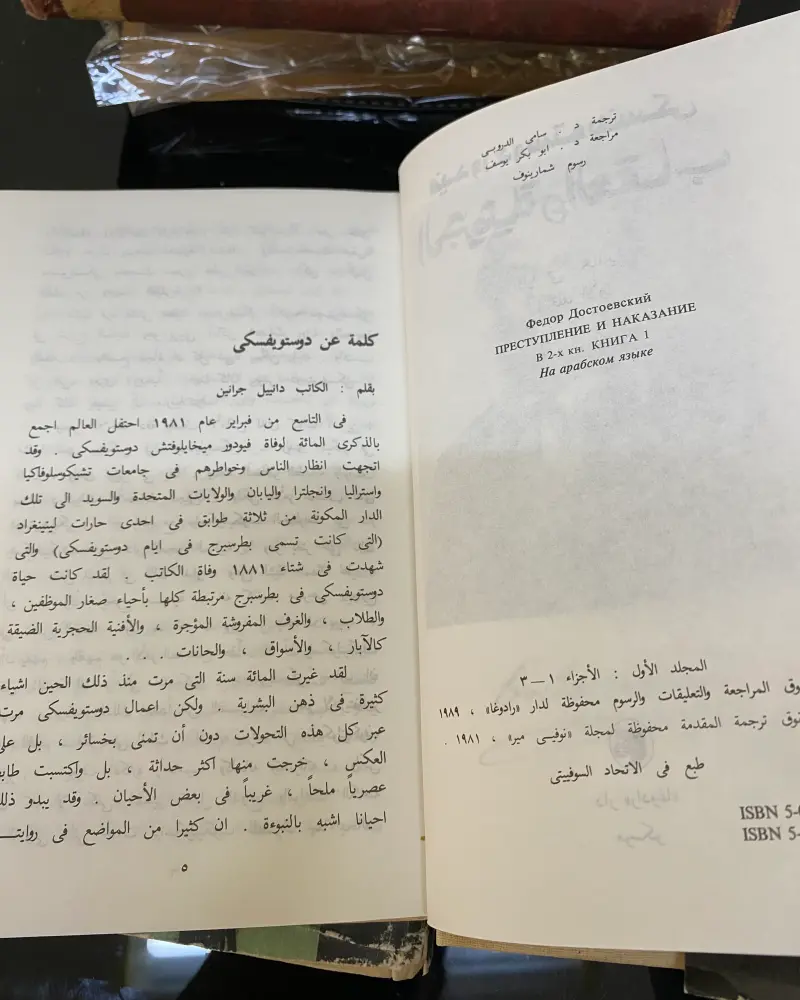 ترجمة د . سامى الدروبى
مراجعة د . ابو بكر يوسف
رسوم شمارينوف
Федор Достоевский
ПРЕСТУПЛЕНИЕ И НАКАЗАНИЕ
В 2-х кн. КНИГА 1
На арабском языке
المجلد الأول : الأجزاء ١ — ٣
وق المراجعة والتعليقات والرسوم محفوظة لدار «رادوغا» ، ١٩٨٩
وق ترجمة المقدمة محفوظة لمجلة «نوفيى مير» ، ١٩٨١ .
طبع فى الاتحاد السوفييتى
ISBN 5-
ISBN 5-
كلمة عن دوستويفسكى
بقلم : الكاتب دانييل جرانين
فى التاسع من فبراير عام ١٩٨١ احتفل العالم اجمع
بالذكرى المائة لوفاة فيودور ميخايلوفتش دوستويفسكى . وقد
اتجهت انظار الناس وخواطرهم فى جامعات تشيكوسلوفاكيا
واستراليا وانجلترا واليابان والولايات المتحدة والسويد الى تلك
الدار المكونة من ثلاثة طوابق فى احدى حارات ليتينغراد
(التى كانت تسمى بطرسبرج فى ايام دوستويفسكى) والتى
شهدت فى شتاء ١٨٨١ وفاة الكاتب . لقد كانت حياة
دوستويفسكى فى بطرسبرج مرتبطة كلها بأحياء صغار الموظفين ،
والطلاب ، والغرف المفروشة المؤجرة ، والأفنية الحجرية الضيقة
كالآبار ، والأسواق ، والحانات . . .
لقد غيرت المائة سنة التى مرت منذ ذلك الحين اشياء
كثيرة فى ذهن البشرية . ولكن اعمال دوستويفسكى مرت
عبر كل هذه التحولات دون أن تمنى بخسائر ، بل على
العكس ، خرجت منها اكثر حداثة ، بل واكتسبت طابع
عصرياً ملحاً ، غريباً فى بعض الأحيان . وقد يبدو ذلك
احيانا اشبه بالنبوءة . ان كثيرا من المواضع فى روايتـ
٥